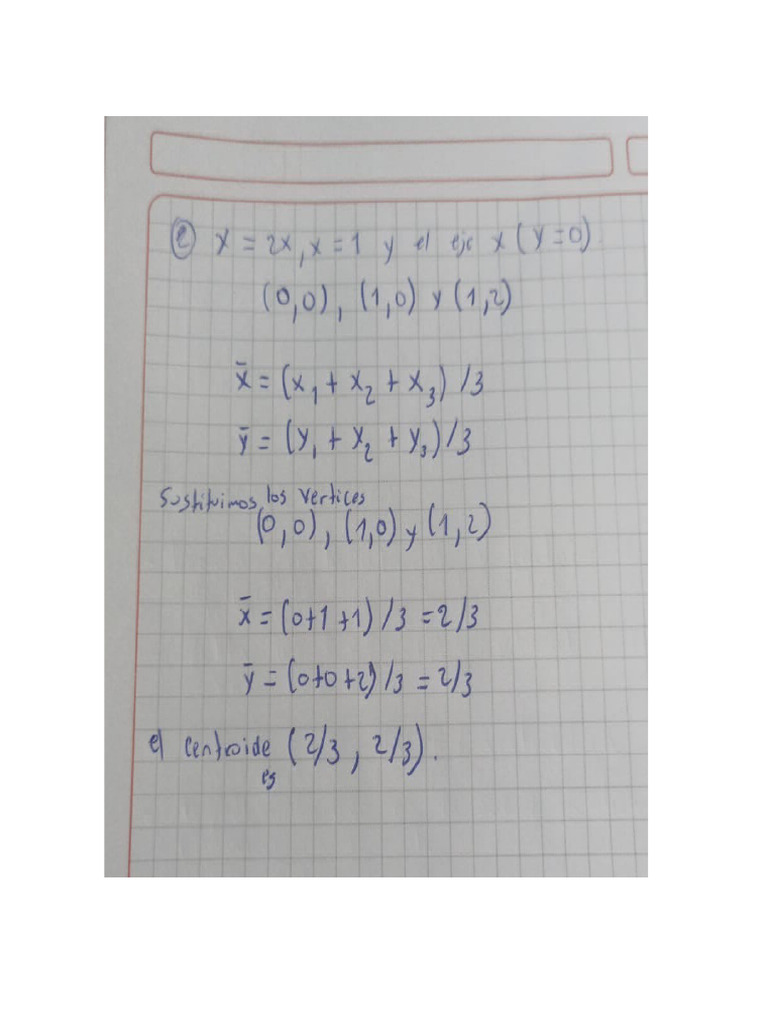 e) y = 2x, x = 1 y el eje x (y=0).
(0,0), (1,0) y (1,2)
x̄ = (x₁ + x₂ + x₃) /3
ȳ = (y₁ + x₂ + y₃) /3
Sustituimos los vertices
(0,0), (1,0) y (1,2)
x̄ = (0+1+1) /3 = 2/3
ȳ = (0+0+2) /3 = 2/3
el centroide (2/3, 2/3).
es